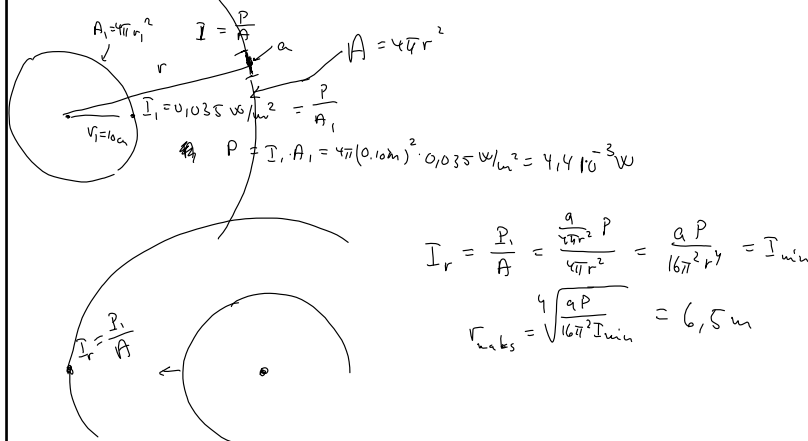 A₁=4πr₁²
I = P/A
a
A = 4πr²
r
r₁=10cm
I₁=0,035 W/m² = P/A₁
P = I₁·A₁ = 4π(0.10m)²·0,035 W/m² = 4,4 10⁻³ W
I_r = P₁/A = (a/(4πr²) P)/(4πr²) = aP/(16π²r⁴) = I_min
r_maks = ⁴√(aP/(16π²I_min)) = 6,5 m
I_r = P₁/A